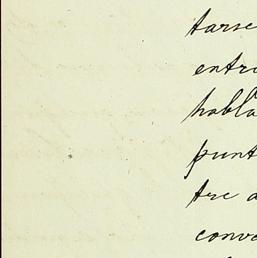 tarse
entr
habla
punt
tre a
conv